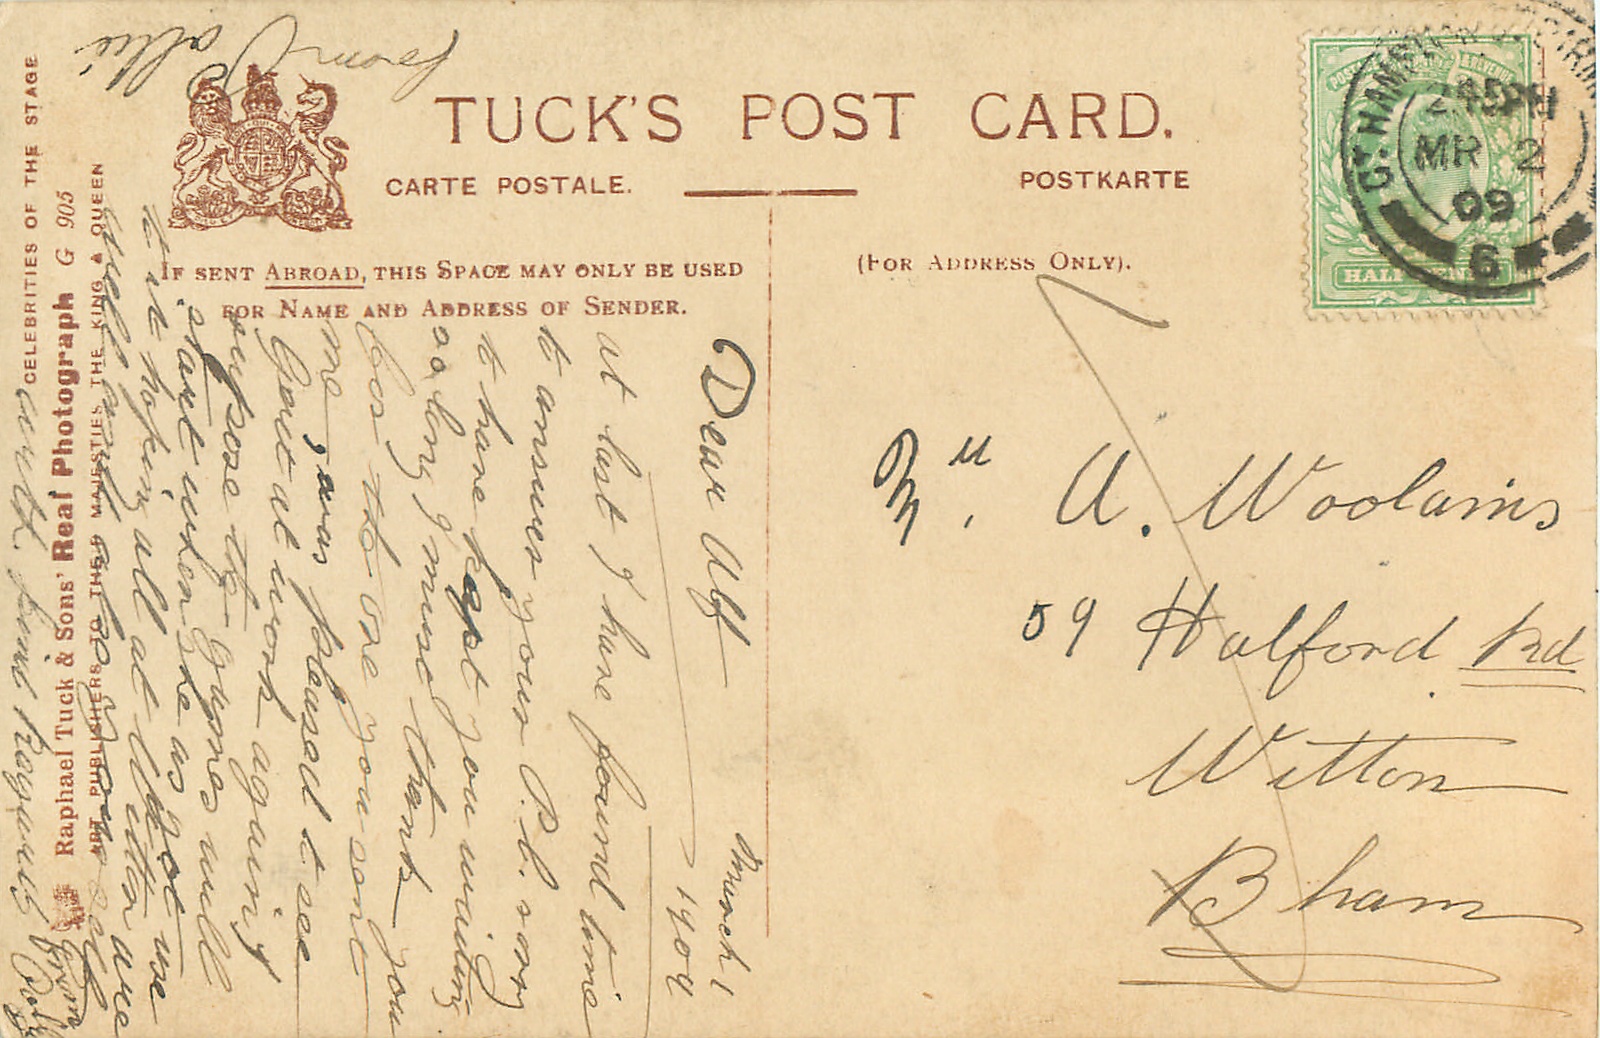 TUCK'S POST CARD.
CARTE POSTALE.
POSTKARTE
IF SENT ABROAD, THIS SPACE MAY ONLY BE USED
FOR NAME AND ADDRESS OF SENDER.
(FOR ADDRESS ONLY).
CELEBRITIES OF THE STAGE
Raphael Tuck & Sons' Real Photograph G 905
ART PUBLISHERS TO THEIR MAJESTIES THE KING & QUEEN
Gt. HAMPTON
2.45PM
MR 2
09
6
March 1
1909
Dear Alf
at last I have found time
to answer your P.C. sorry
to have kept you waiting
so long I must thank you
for the one you sent
me, was pleased to see
Gout at work again
suppose the Gymes will
start when he as got use
to it hoping all at Witton are
well and also your self
from
from
Mr. A. Woolams
59 Halford Rd
Witton
Bham